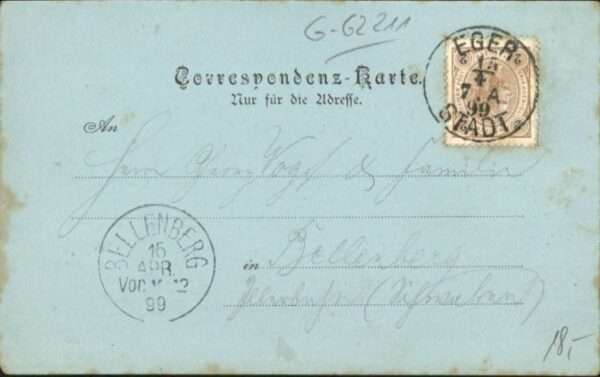 G-62211
EGER
15
4
7 A
99
STADT
Correspondenz-Karte.
Nur für die Adresse.
An
Herrn Georg Vogt & Familie
BELLENBERG
16
APR.
Vor.
12
99
in Bellenberg
(Schwaben)
18,-